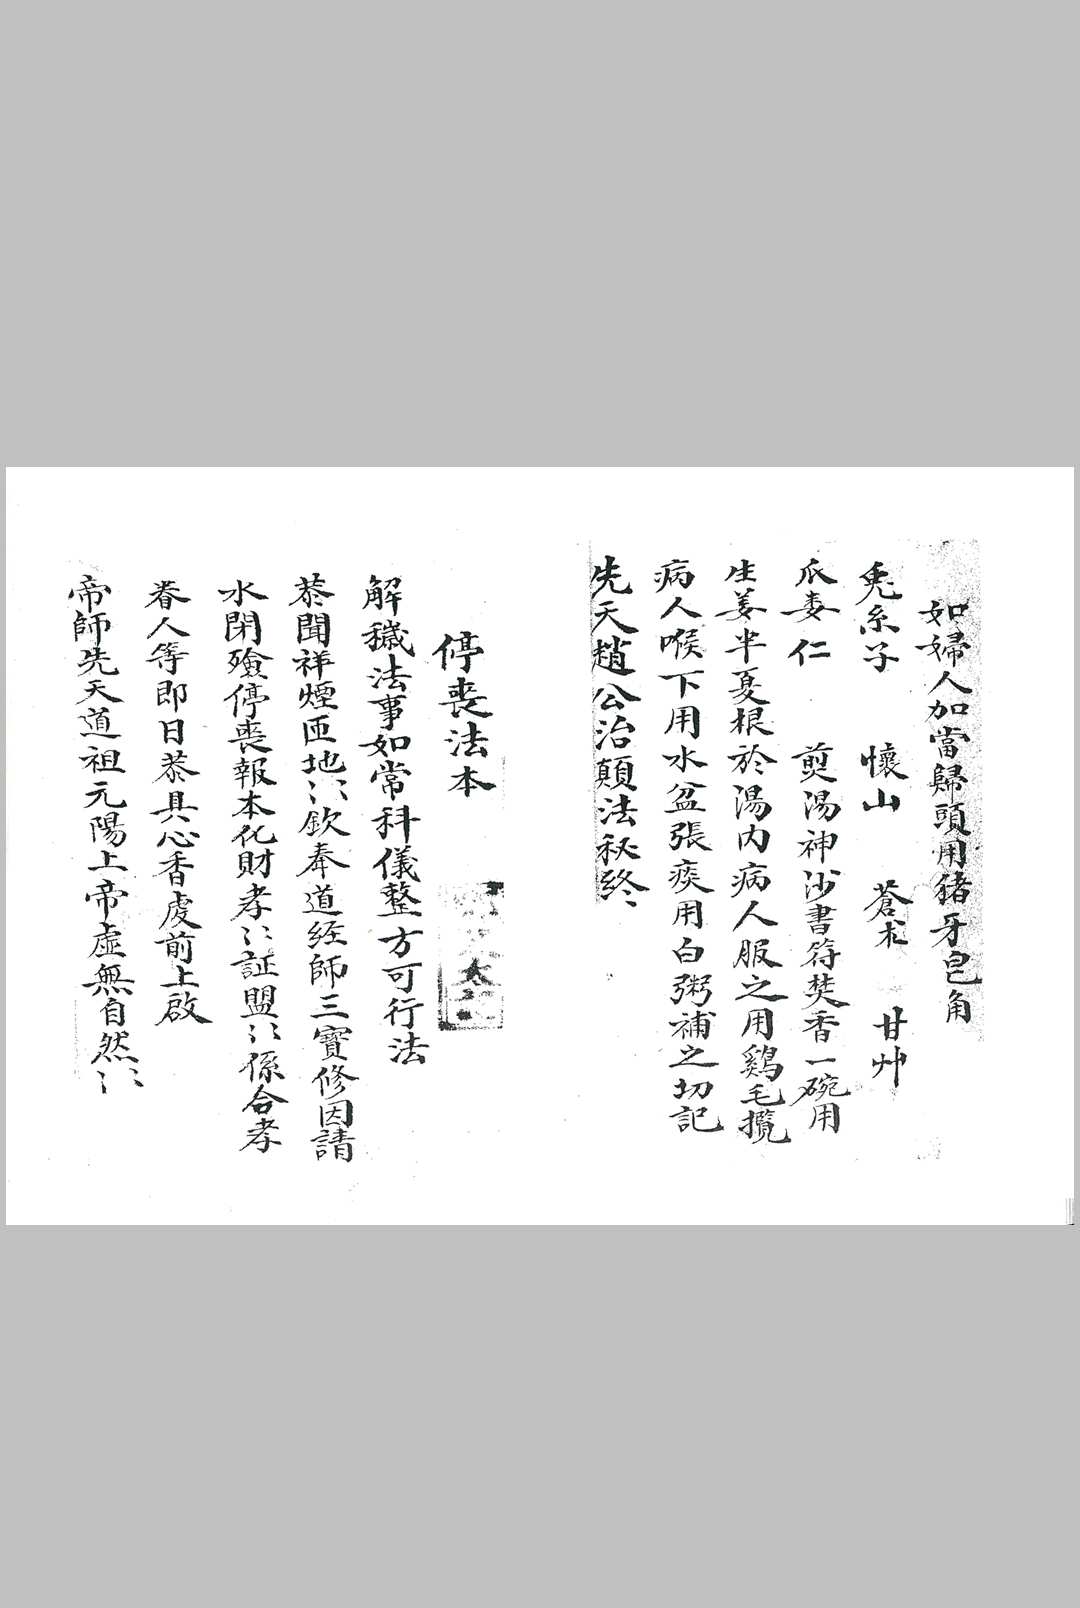 如婦人加當歸頭用豬牙皂角
兎糸子 懷山 蒼朮 甘艸
爪婁仁 煎湯神沙書符焚香一碗用
生姜半夏根於湯內病人服之用鷄毛攪
病人喉下用水盆張痰用白粥補之切記
先天趙公治顛法秘終
停喪法本
解穢法事如常科儀整方可行法
恭聞祥煙匝地〻欽奉道經師三寶修因請
水閉殮停喪報本化財孝〻証盟〻係合孝
眷人等即日恭具心香虔前上啟
帝師先天道祖元陽上帝虛無自然〻